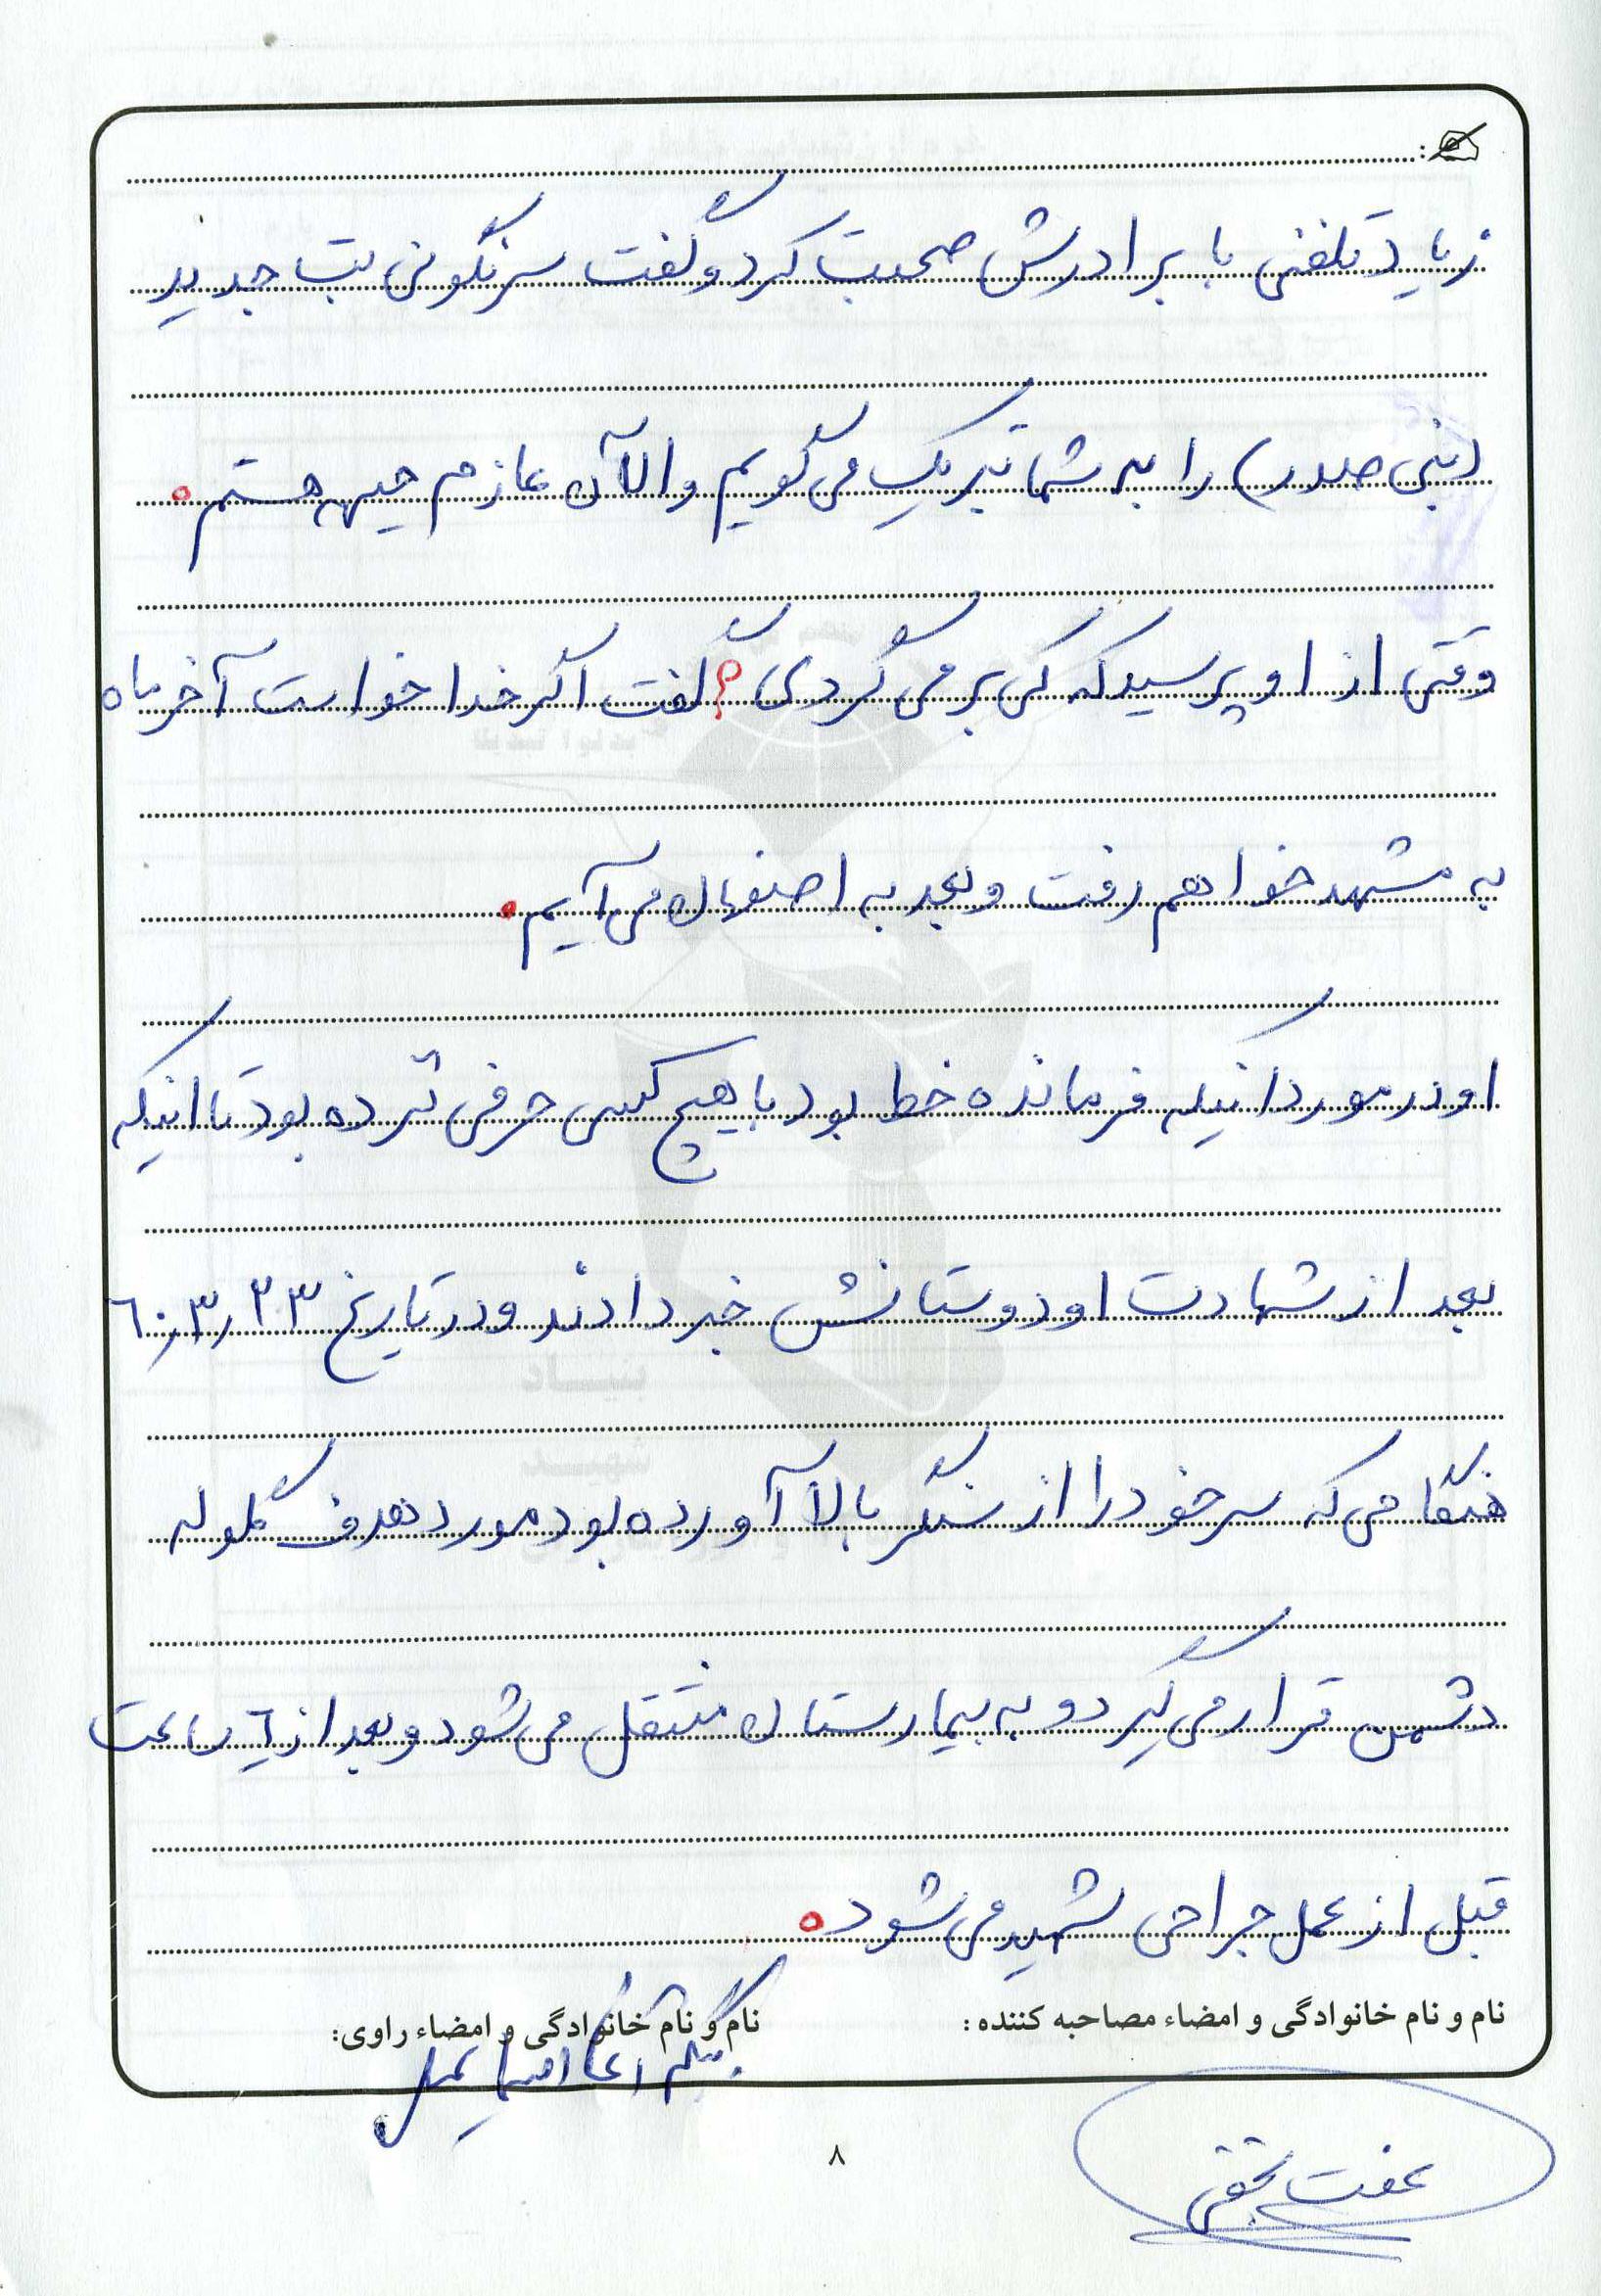 زیاد تلفنی با برادرش صحبت کرد و گفت سرنگونی بت جدید
(بنی صدر) را به شما تبریک می گویم و الآن عازم جبهه هستم.
وقتی از او پرسید که کی بر می گردی؟ گفت اگر خدا خواست آخر ماه
به مشهد خواهم رفت و بعد به اصفهان می آیم.
او در مورد اینکه فرمانده خط بود با هیچ کس حرفی نزده بود تا اینکه
بعد از شهادت او دوستانش خبر دادند و در تاریخ ۶۰٫۳٫۲۳
هنگامی که سر خود را از سنگر بالا آورده بود مورد هدف گلوله
دشمن قرار می گیرد و به بیمارستان منتقل می شود و بعد از ۶ ساعت
قبل از عمل جراحی شهید می شود.
نام و نام خانوادگی و امضاء مصاحبه کننده:
نام و نام خانوادگی و امضاء راوی:
بیگم آغا
عفت
۸
بنیاد
شهید